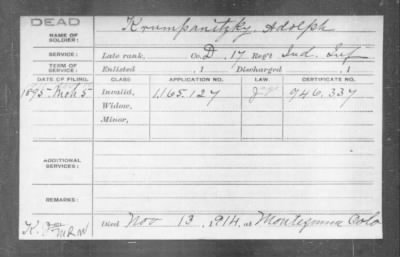 DEAD
NAME OF SOLDIER: Krumpanitzky, Adolph
SERVICE: Late rank, Co. D, 17 Reg't Ind. Inf
TERM OF SERVICE: Enlisted , 1 Discharged , 1
DATE OF FILING. CLASS. APPLICATION NO. LAW. CERTIFICATE NO.
1895 Mch 5 Invalid, 1,165.127 946.337
Widow,
Minor,
ADDITIONAL SERVICES:
REMARKS:
K. Died Nov 13, 1914, at Montezuma Colo